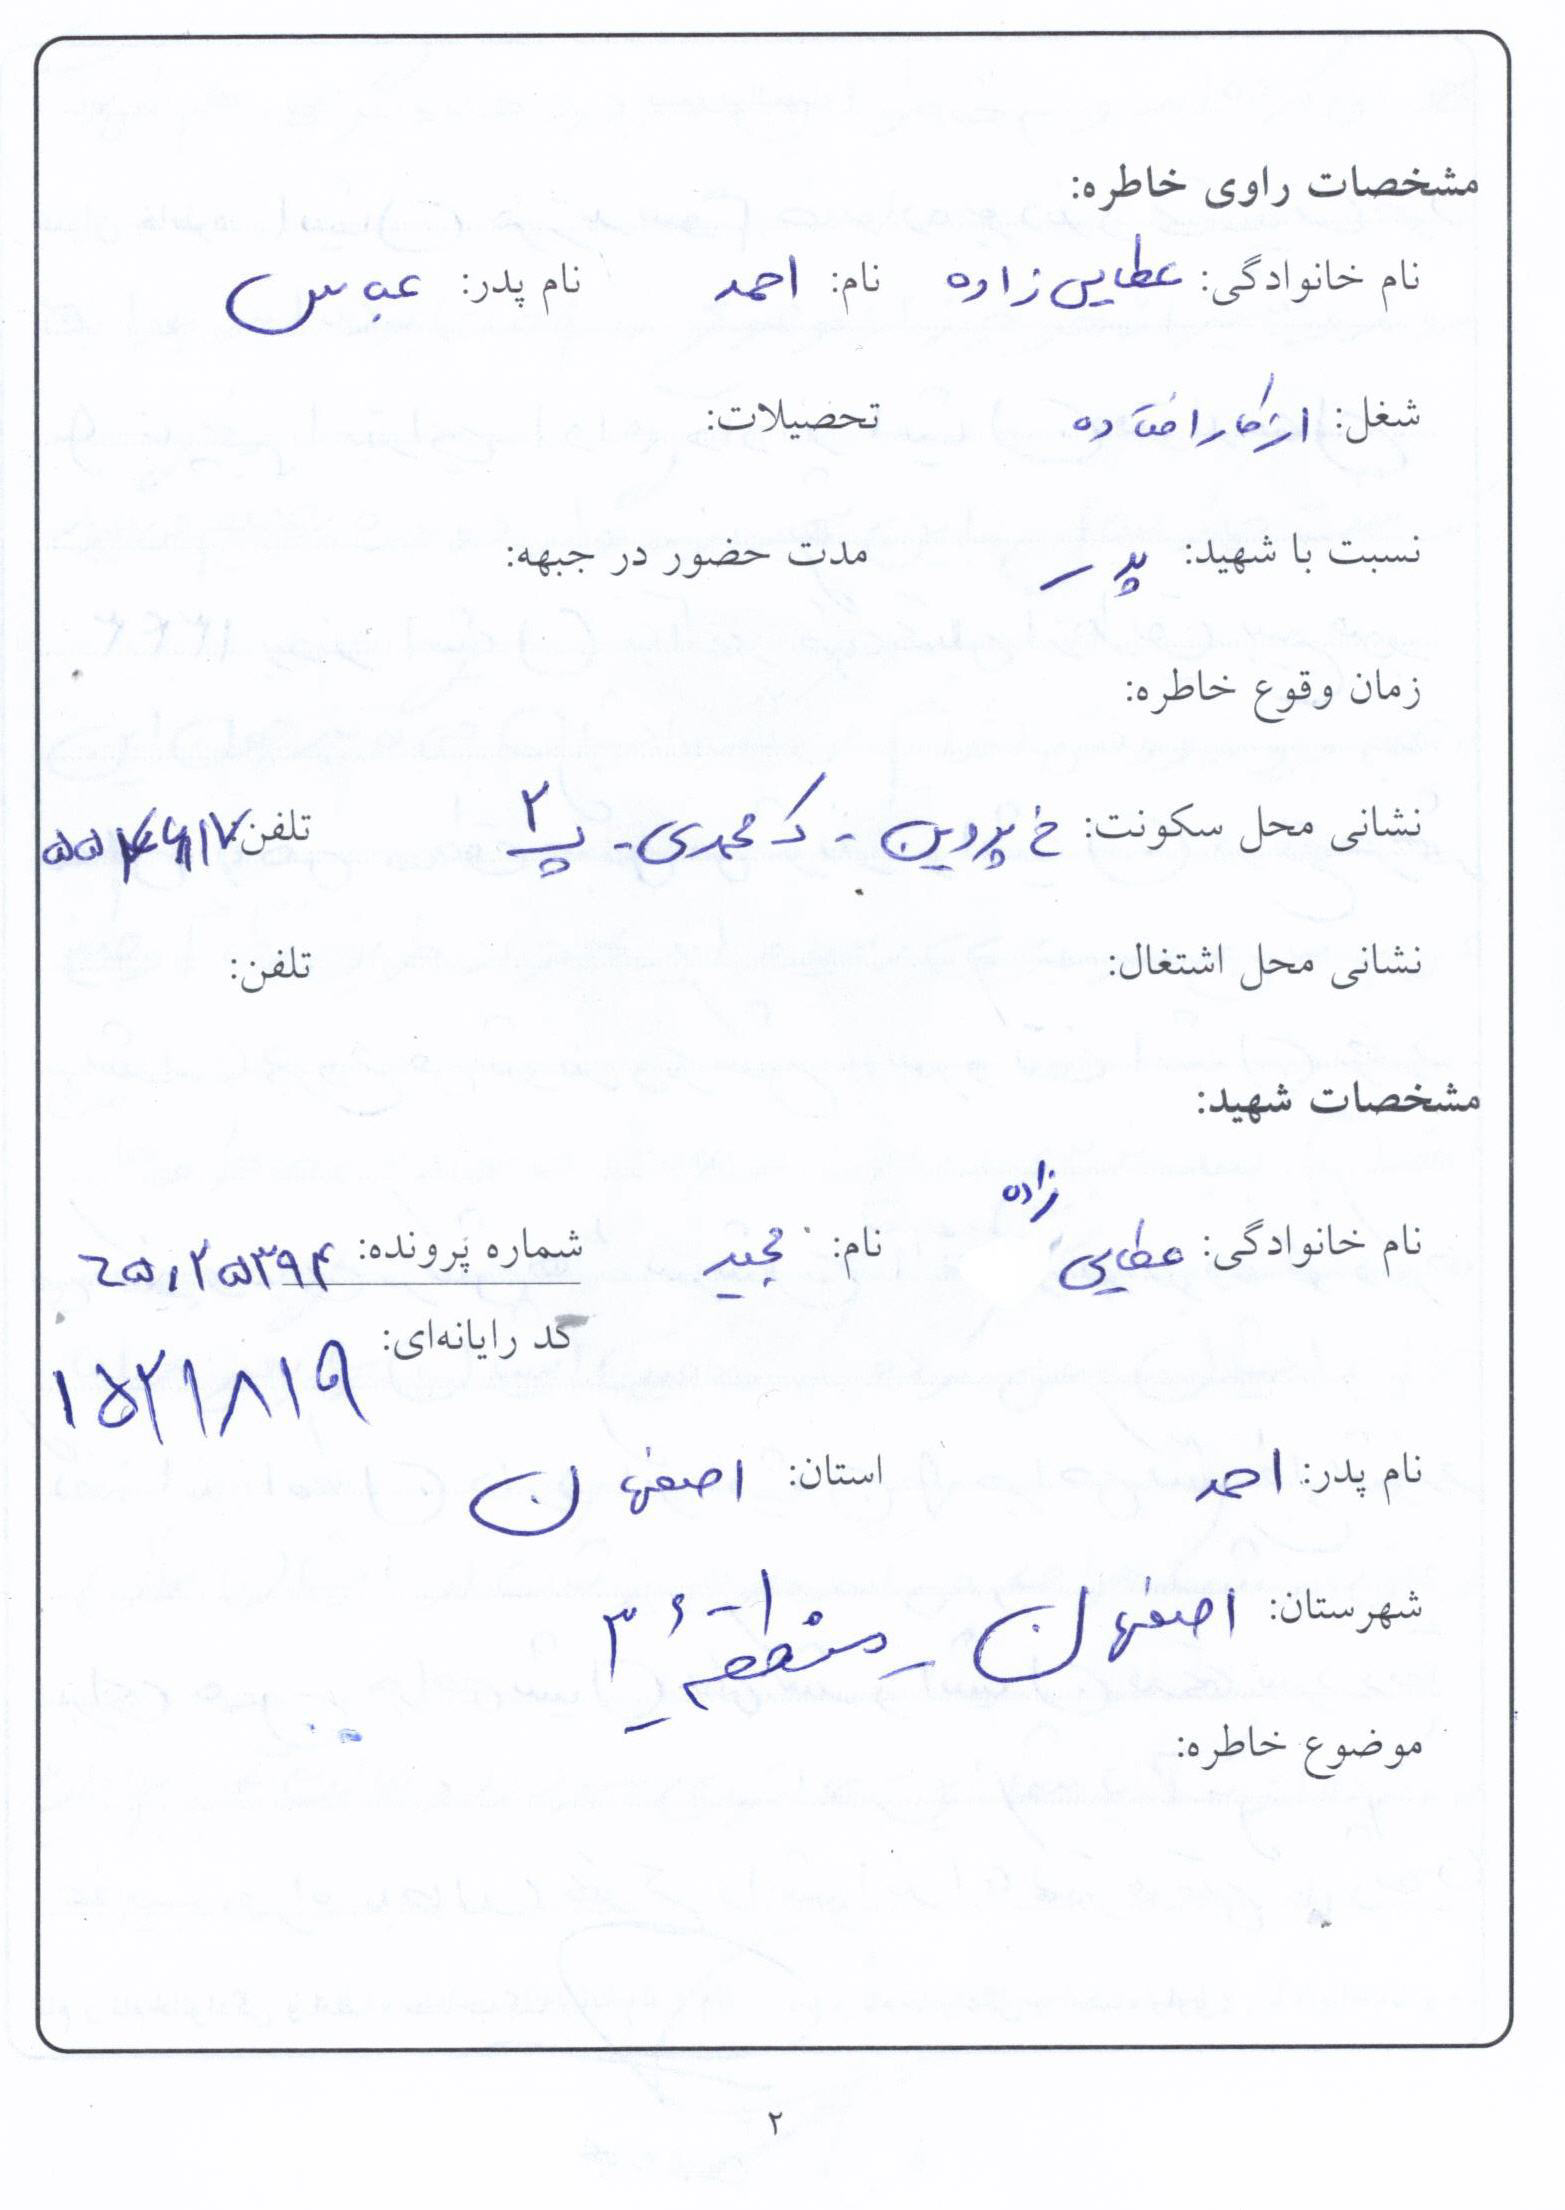 مشخصات راوی خاطره:
نام خانوادگی: عطایی زاده نام: احمد نام پدر: عباس
شغل: ازکارافتاده تحصیلات:
نسبت با شهید: پدر مدت حضور در جبهه:
زمان وقوع خاطره:
نشانی محل سکونت: خ پروین - ک محمدی - پ ۲ تلفن:
نشانی محل اشتغال: تلفن:
مشخصات شهید:
نام خانوادگی: عطایی زاده نام: مجید شماره پرونده:
کد رایانه‌ای: ۱۵۲۱۸۱۹
نام پدر: احمد استان: اصفهان
شهرستان: اصفهان - منطقهٔ ۳
موضوع خاطره:
۲